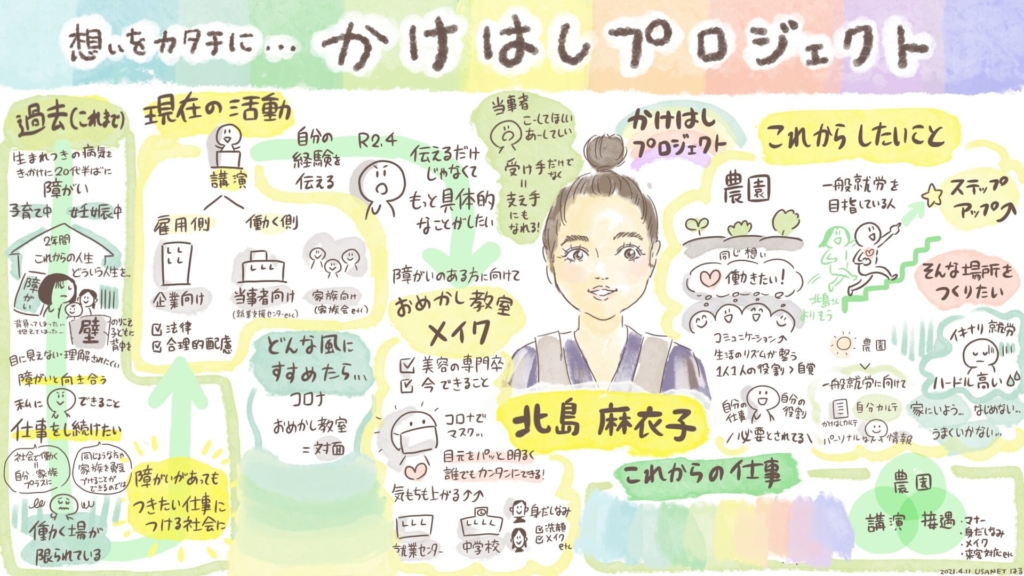 想いをカタチに...
かけはしプロジェクト
過去(これまで)
生まれつきの病気を
きっかけに20代半ばに
障がい
子育て中 妊娠中
2年間
これからの人生
どういう人生を...
障がい
背負ってしまった…
壁
目に見えない理解されにくい
障がいと向き合う
私に できること
仕事をし続けたい
社会で働く
=
自分 家族
プラスに
同じような方
家族を勇気
づけることが
できるのでは
働く場が
限られている
障がいがあっても
つきたい仕事に
つける社会に
現在の活動
講演
自分の
経験を
伝える
雇用側
働く側
企業向け
当事者向け
(就業支援センターetc)
家族向け
(家族会etc)
法律
合理的配慮
どんな風に
すすめたら...
コロナ
おめかし教室
=対面
R2.4
伝えるだけ
じゃなくて
もっと具体的
なことがしたい
障がいのある方に向けて
おめかし教室
メイク
美容の専門卒
今できること
コロナで
マスク...
目元をパッと明るく
誰でもカンタンにできる!
気もち上がる↑↑
就業センター
中学校
身だしなみ
洗顔
メイク
etc
当事者
こーしてほしい
あーしてしい
受け手だけで
なく
=
支え手
にも
なれる!
北島 麻衣子
かけはし
プロジェクト
これからしたいこと
農園
同じ想い
働きたい!
コミュニケーション↗
生活のリズムが整う
1人1人の役割>自覚
自分の
仕事
自分の
役割
必要とされてる
一般就労を
目指している人
北島さん
ステップ
アップ↗
そんな場所を
つくりたい
農園
一般就労に向けて
自分カルテ
かけはしカルテ
パーソナルな情報
イキナリ就労
ハードル高い
家にいよう... なじめない...
うまくいかない...
これからの仕事
農園
講演 接遇
・マナー
・身だしなみ
・メイク
・来客対応etc
2021.4.11 USANET はる